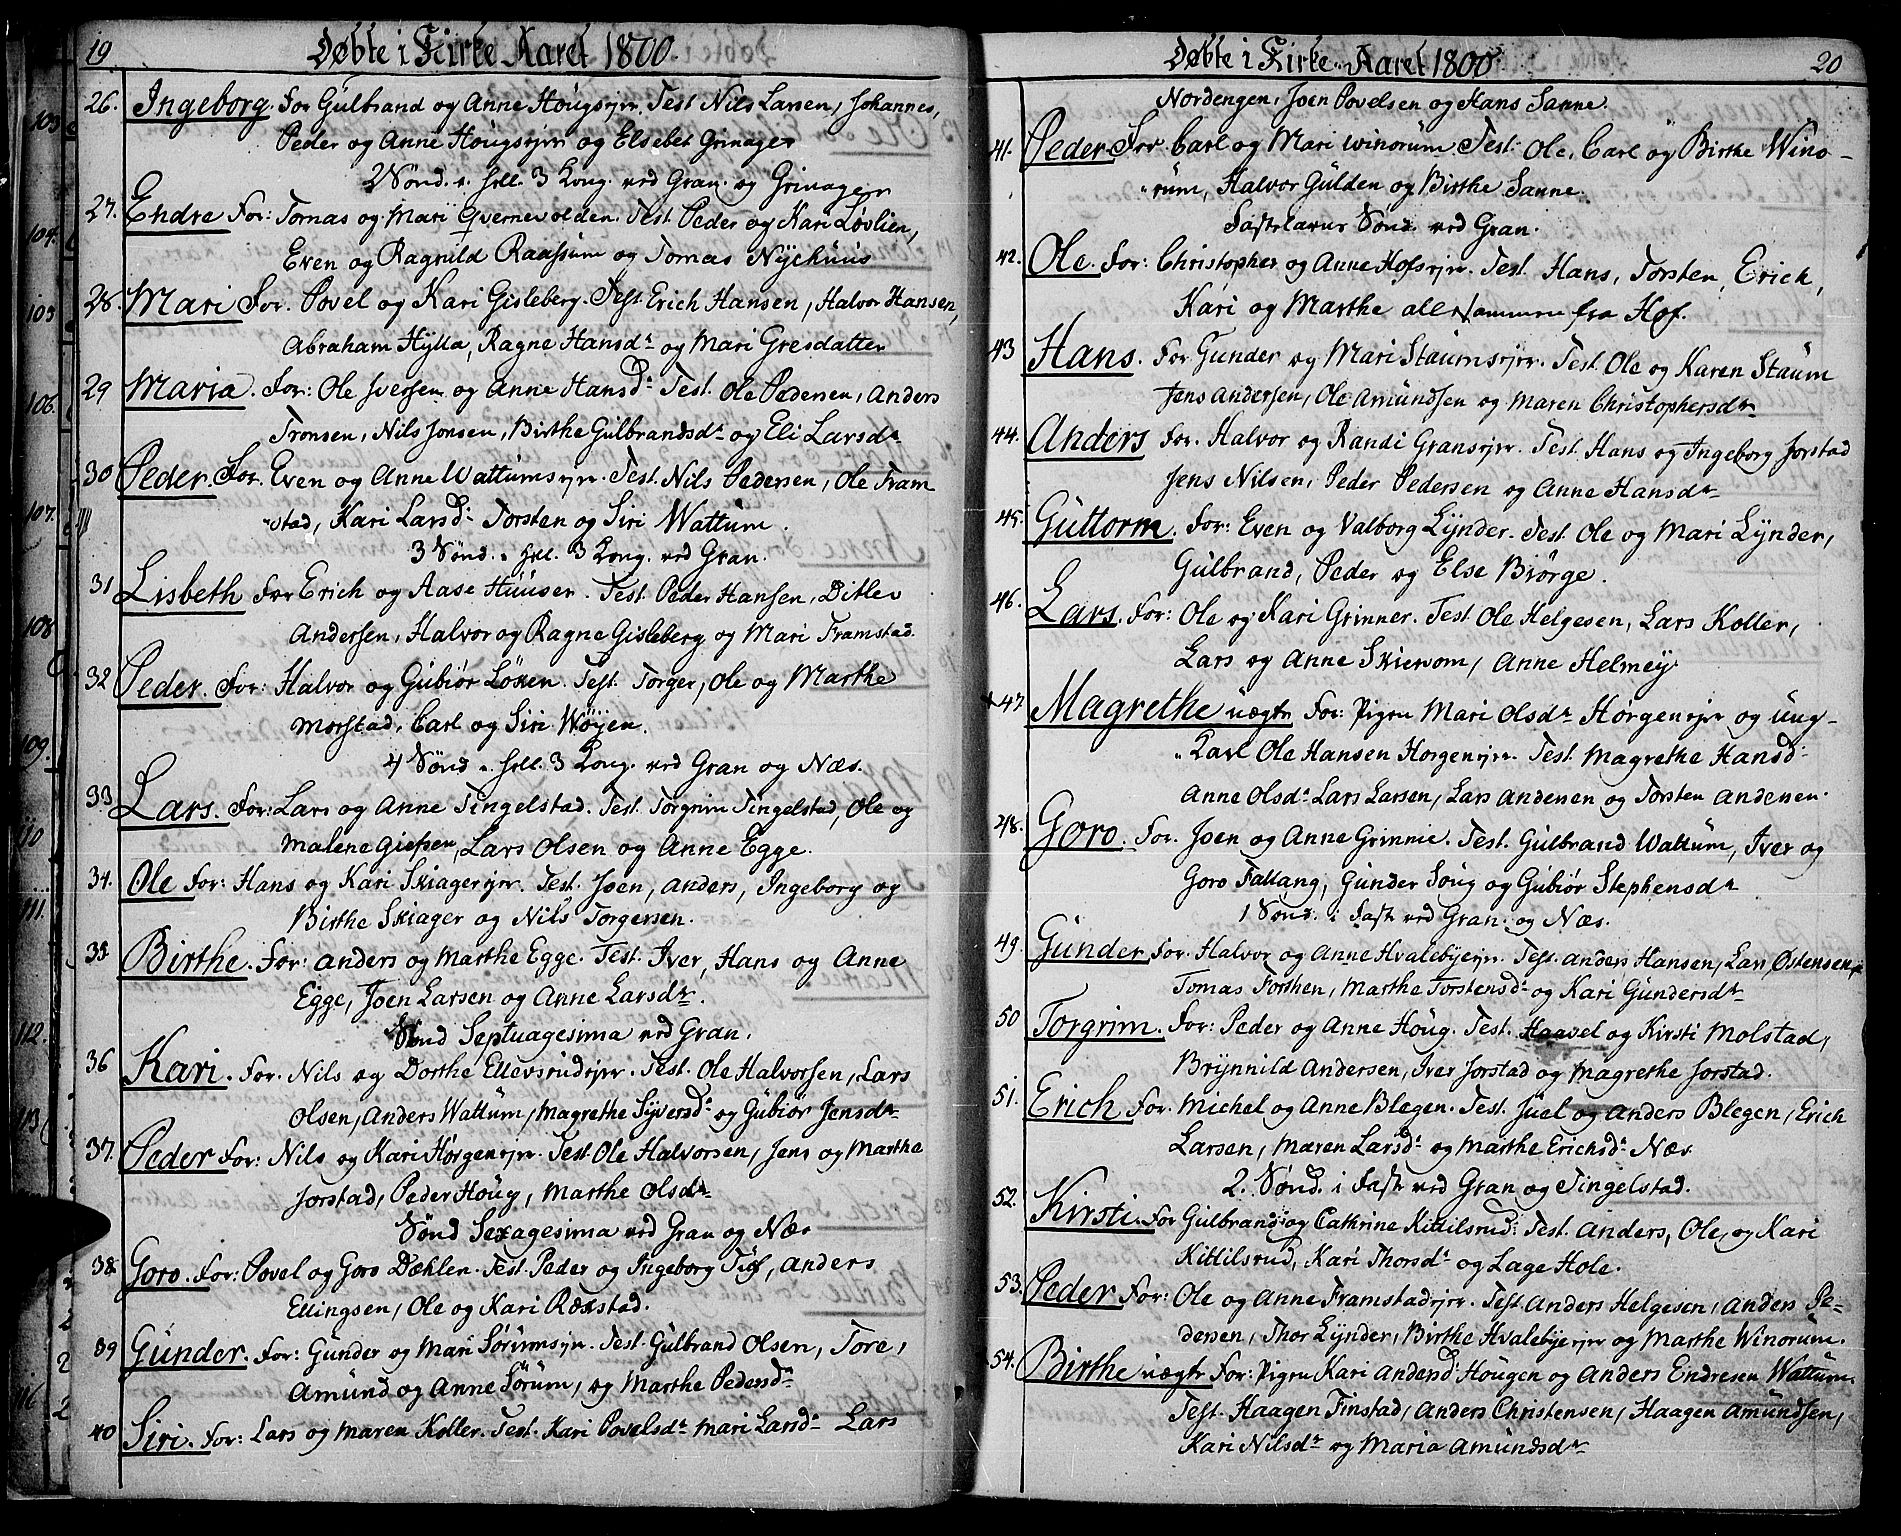 19 Døbte i Kirke Aaret 1800.
26. Ingeborg. For Gulbrand og Anne Hougsejer. Test Nils Larsen, Johannes,
Peder og Anne Hougsejer og Elsebet Grinager
2 Sønd. e. hell. 3 Kong. ved Gran og Grinager
27. Endre For: Tomas og Mari Qvernevolden. Test. Peder og Kari Løvlien,
Even og Ragnild Raassum og Tomas Nyehuus
28. Mari For. Povel og Kari Gisleberg. Test. Erich Hansen, Halvor Hansen,
Abraham Hylla, Ragne Hansdr og Mari Gresdatter
29 Maria. For: Ole Iversen og Anne Hansdr Test. Ole Pedersen, Anders
Tronsen, Nils Jonsen, Birthe Gulbrandsdr og Eli Larsdr
30 Peder For. Even og Anne Wattumsejer. Test. Nils Pedersen, Ole Fram
stad, Kari Larsdr Torsten og Siri Wattum.
3 Sønd. e. hell. 3 Kong. ved Gran.
31 Lisbeth For Erich og Aase Huuser. Test. Peder Hansen, Ditlev
Andersen, Halvor og Ragne Gisleberg og Mari Framstad.
32 Peder. For: Halvor og Gubiør Løken. Test. Torger, Ole og Marthe
Morstad, Carl og Siri Wøyen.
4 Sønd. e. hell. 3 Kong. ved Gran og Næs.
33 Lars. For: Lars og Anne Tingelstad. Test. Torgrim Tingelstad, Ole og
Malene Giefsen, Lars Olsen og Anne Egge.
34. Ole For: Hans og Kari Skiagerejer. Test. Joen, Anders, Ingeborg og
Birthe Skiager og Nils Torgersen.
35 Birthe. For: Anders og Marthe Egge. Test. Iver, Hans og Anne
Egge, Joen Larsen og Anne Larsdr.
Sønd Septuagesima ved Gran.
36 Kari. For. Nils og Dorthe Ellevsrudejer. Test. Ole Halvorsen, Lars
Olsen, Anders Wattum, Magrethe Syversdr og Gubiør Jensdr
37. Peder For: Nils og Kari Horgensejer. Test. Ole Halvorsen, Jens og Marthe
Jorstad, Peder Houg, Marthe Olsdr
Sønd Sexagesima ved Gran og Næs
38. Goro. For: Povel og Goro Dæhlen. Test. Peder og Ingeborg Tuf, Anders
Ellingsen, Ole og Kari Rækstad.
39 Gunder. For: Gunder og Mari Sørumsejer. Test. Gulbrand Olsen, Tore,
Amund og Anne Sørum, og Marthe Pedersdr
40 Siri. For: Lars og Maren Koller. Test. Kari Povelsdr Mari Larsdr Lars
Døbte i Kirke Aaret 1800. 20
Nordengen, Joen Povelsen og Hans Sanne.
41. Peder For Carl og Mari Winorum. Test. Ole, Carl og Birthe Wino-
rum, Halvor Gulden og Birthe Sanne.
Fastelavns Sønd. ved Gran.
42. Ole. For: Christopher og Anne Hofsejer. Test. Hans, Torsten, Erich,
Kari og Marthe allesammen fra Hof.
43 Hans. For Gunder og Mari Staumsejer. Test. Ole og Karen Staum
Jens Andersen, Ole Amundsen og Maren Christophersdr
44. Anders For. Halvor og Randi Gransejer. Test. Hans og Ingeborg Jorstad
Jens Nilsen, Peder Pedersen og Anne Hansdr
45. Guttorm. For: Even og Valborg Lynder. Test. Ole og Mari Lynder,
Gulbrand, Peder og Else Biørge.
46. Lars. For: Ole og Kari Grinner. Test Ole Helgesen, Lars Koller,
Lars og Anne Skiervom, Anne Helmey.
47 Magrethe uægte For: Pigen Mari Olsdr Horgensejer og Ung-
Karl Ole Hansen Horgensejer. Test. Magrethe Hansd.
Anne Olsdr Lars Larsen, Lars Andersen og Torsten Andersen.
48. Goro. For. Joen og Anne Grinnie. Test. Gulbrand Wattum, Iver og
Goro Fallang, Gunder Soug og Gubiør Stephensdr
1 Sønd. i Fast ved Gran og Næs.
49. Gunder For. Halvor og Anne Hvalebyejer. Test. Anders Hansen, Lars Østensen,
Tomas Forthen, Marthe Torstensdr og Kari Gundersdr
50 Torgrim. For: Peder og Anne Houg. Test. Haavel og Kirsti Molstad,
Brynnild Andersen, Iver Jorstad og Magrethe Jorstad.
51. Erich For. Michel og Anne Blegen. Test. Juel og Anders Blegen, Erich
Larsen, Maren Larsdr og Marthe Erichsdr Næs
2. Sønd. i Fast ved Gran og Tingelstad.
52. Kirsti. For Gulbrand og Cathrine Kittilsrud: Test. Anders, Ole, og Kari
Kittilsrud, Kari Thorsdr og Lage Hole.
53. Peder For: Ole og Anne Framstadejer. Test. Anders Helgesen, Anders Pe-
dersen, Thor Lynder, Birthe Hvalebyejer og Marthe Winorum.
54. Birthe uægte For: Pigen Kari Andersd. Hougen og Anders Endresen Wattum.
Test. Haagen Finstad, Anders Christensen, Haagen Amundsen,
Kari Nilsdr og Maria Amundsdr